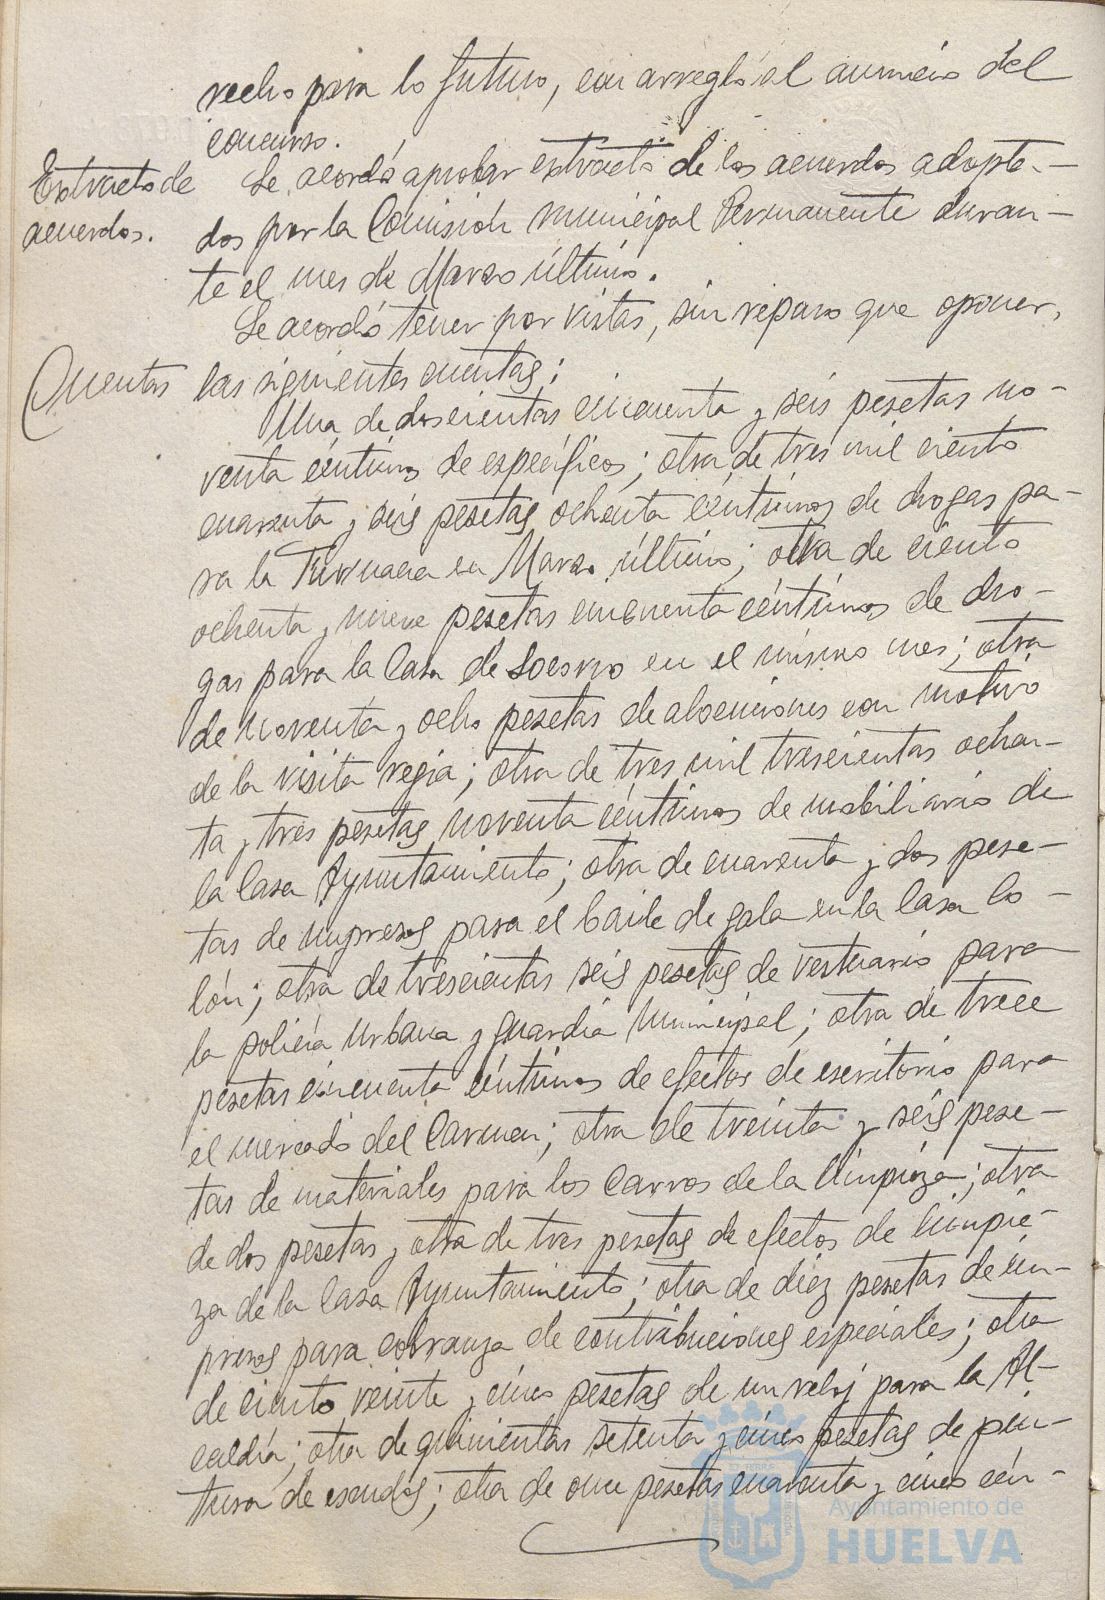 recho para lo futuro, con arreglo al anuncio del
concurso.
Extracto de
acuerdos.
Se acordó aprobar extracto de los acuerdos adopta-
dos por la Comisión Municipal Permanente duran-
te el mes de Marzo último.
Se acordó tener por vistas, sin reparo que oponer,
Cuentas
las siguientes cuentas;
Una de doscientas cincuenta y seis pesetas no-
venta céntimos de específicos; otra de tres mil ciento
cuarenta y seis pesetas ochenta céntimos de drogas pa-
ra la Farmacia en Marzo último; otra de ciento
ochenta y nueve pesetas cincuenta céntimos de dro-
gas para la Casa de Socorro en el mismo mes; otra
de noventa y ocho pesetas de atenciones con motivo
de la visita regia; otra de tres mil trescientas ochen-
ta y tres pesetas noventa céntimos de mobiliario de
la Casa Ayuntamiento; otra de cuarenta y dos pese-
tas de impresos para el baile de gala en la Casa Co-
lón; otra de trescientas seis pesetas de vestuario para
la policía urbana y guardia municipal; otra de trece
pesetas cincuenta céntimos de efectos de escritorio para
el mercado del Carmen; otra de treinta y seis pese-
tas de materiales para los carros de la limpieza; otra
de dos pesetas y otra de tres pesetas de efectos de limpie-
za de la Casa Ayuntamiento; otra de diez pesetas de im-
presos para cobranza de contribuciones especiales; otra
de ciento veinte y cinco pesetas de un reloj para la Al-
caldía; otra de quinientas setenta y cinco pesetas de pin-
tura de escudos; otra de once pesetas cuarenta y cinco cén-
Ayuntamiento de
HUELVA